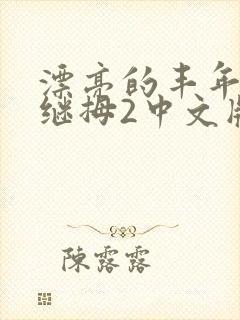 漂亮的丰年
继拇2中文版
陳露露